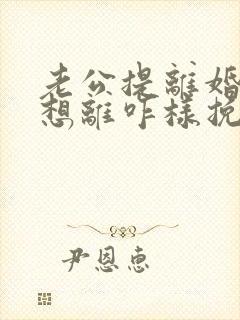 老公提離婚
想離咋樣挽
尹恩惠